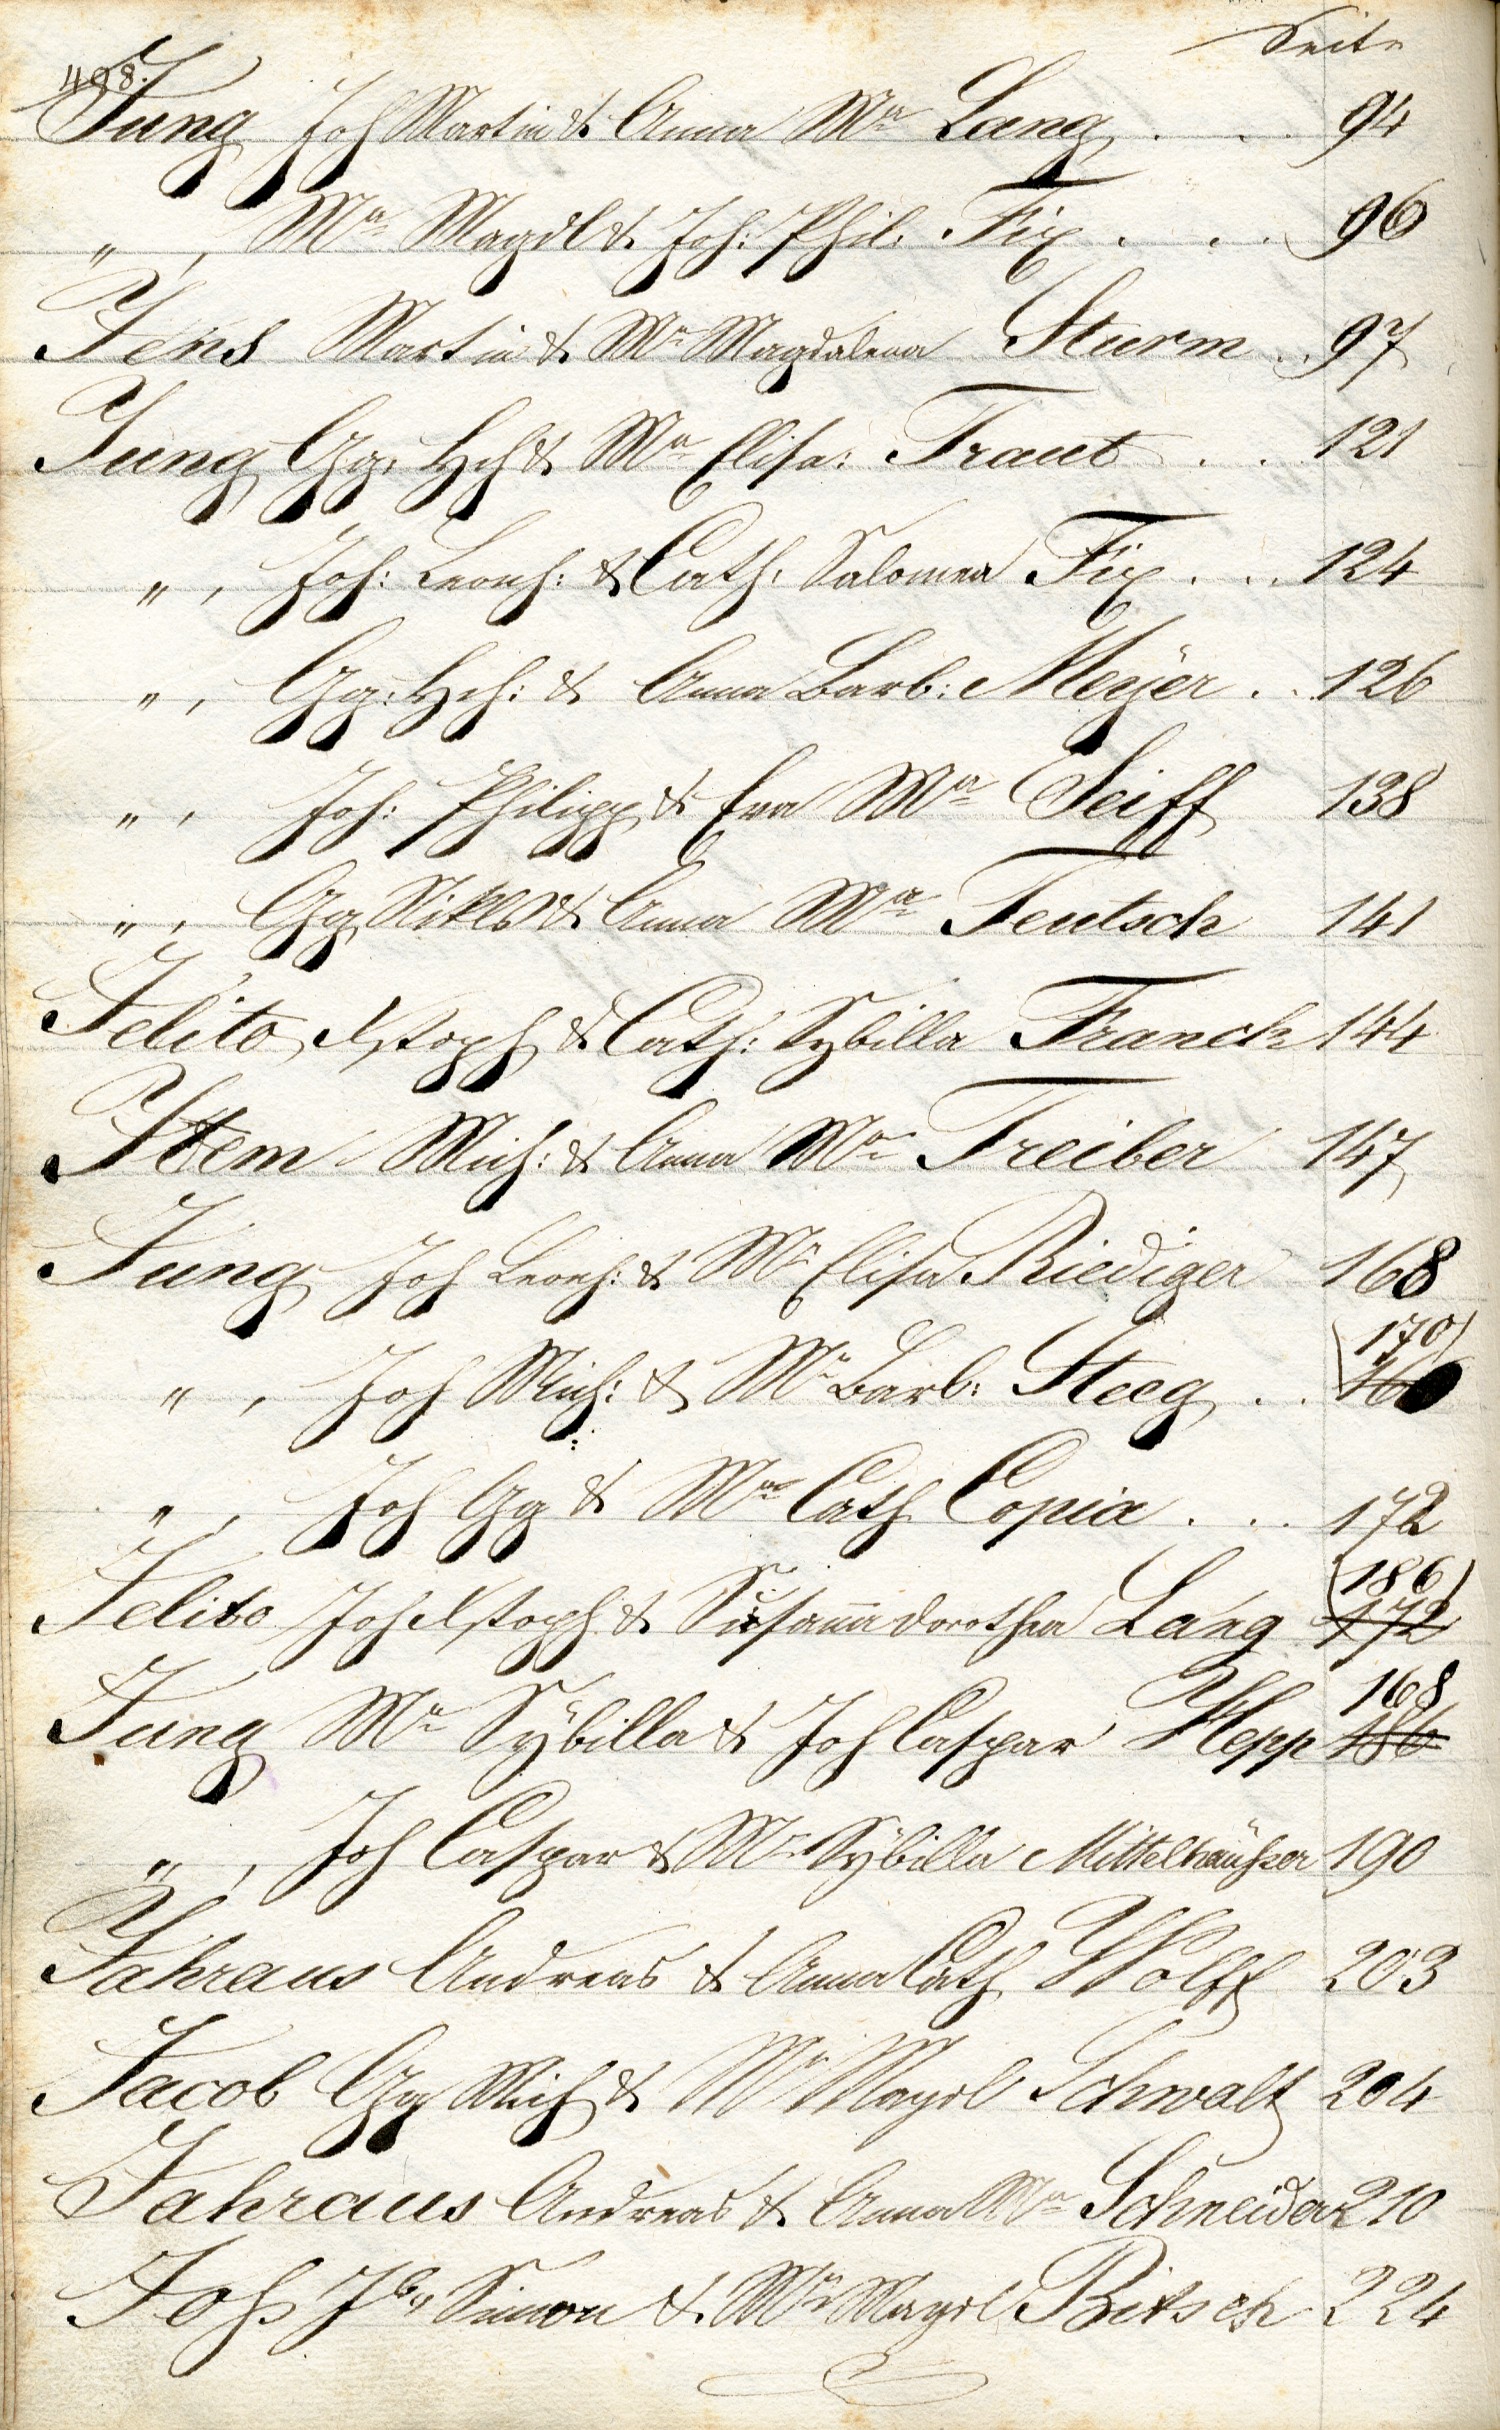 Seite
498.
Jung Joh Martin & Anna Mª Lang . . . 94
" , Mª Magdl & Joh: Phil. Fix . . . 96
Jens Martin & Mª Magdalena Sturm . . 97
Jung Gg: Hch & Mª Elisa: Traut . . . 121
" , Joh: Leonh: & Cath: Salomea Fix . . . 124
" , Gg: Hch: & Anna Barb: Meÿer . . 126
" , Joh: Philipp & Eva Mª Seiff 138
" , Gg Nikls & Anna Mª Teutsch 141
Jelito Xstoph & Cath: Sybilla Franck 144
Ittem Mich: & Anna Mª Treiber 147
Jung Joh Leonh: & Mª Elisa Riediger 168
170
" , Joh Mich: & Mª Barb: Steeg . .
" , Joh Gg & Mª Cath Copia . . . 172
186
Jelito Joh Xstoph & Susaña Dorothea Lang 172
168
Jung Mª Sÿbilla & Joh Caspar Hepp 186
" , Joh Caspar & Mª Sÿbilla Mittelhäußer 190
Jahraus Andreas & Anna Cath Wolff 203
Jacob Gg Mich & Mª Magdl Schwalt 204
Jahraus Andreas & Anna Mª Schneider 210
Joß Jb. Simon & Mª Magdl Bitsch 224